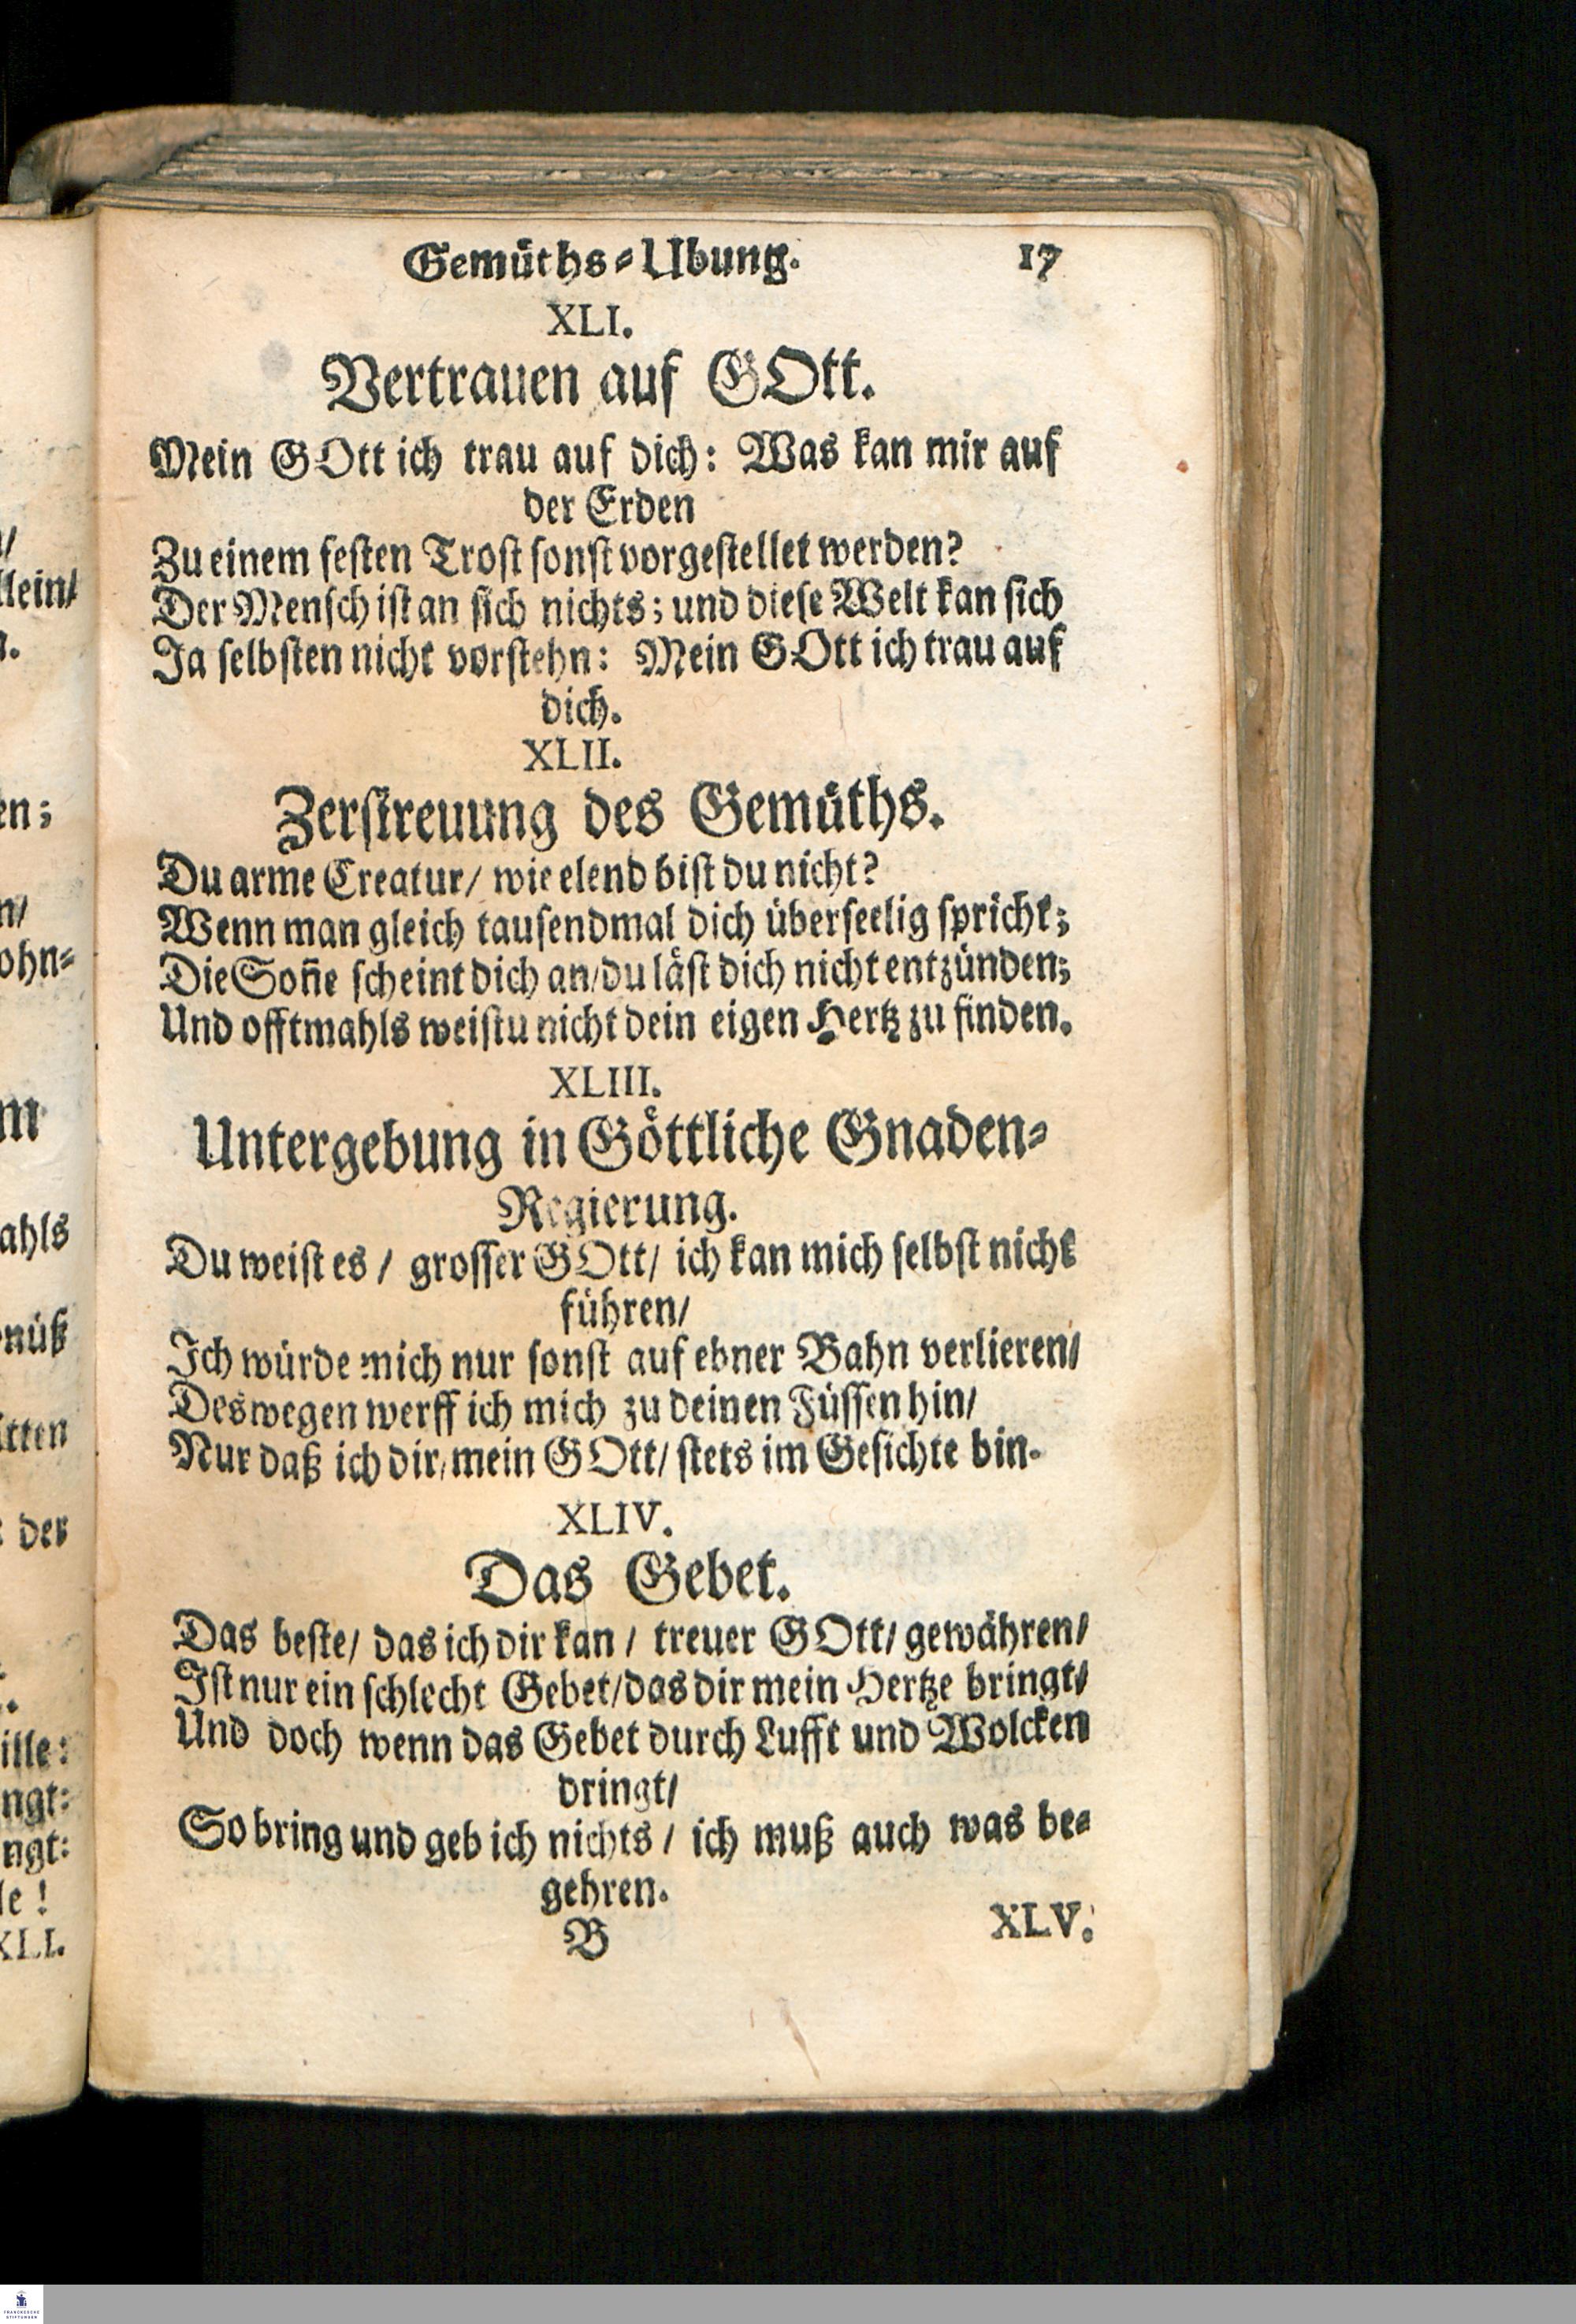 Gemüths-Ubung. 17
XLI.
Vertrauen auf GOtt.
Mein GOtt ich trau auf dich: Was kan mir auf
der Erden
Zu einem festen Trost sonst vorgestellet werden?
Der Mensch ist an sich nichts; und diese Welt kan sich
Ja selbsten nicht vorstehn: Mein GOtt ich trau auf
dich.
XLII.
Zerstreuung des Gemüths.
Du arme Creatur/ wie elend bist du nicht?
Wenn man gleich tausendmal dich überseelig spricht;
Die Soñe scheint dich an/ du läst dich nicht entzünden;
Und offtmahls weistu nicht dein eigen Hertz zu finden.
XLIII.
Untergebung in Göttliche Gnaden-
Regierung.
Du weist es / grosser GOtt/ ich kan mich selbst nicht
führen/
Ich würde mich nur sonst auf ebner Bahn verlieren/
Deswegen werff ich mich zu deinen Füssen hin/
Nur daß ich dir, mein GOtt/ stets im Gesichte bin.
XLIV.
Das Gebet.
Das beste/ das ich dir kan / treuer GOtt/ gewähren/
Ist nur ein schlecht Gebet/ das dir mein Hertze bringt/
Und doch wenn das Gebet durch Lufft und Wolcken
dringt/
So bring und geb ich nichts / ich muß auch was be-
gehren.
B XLV.
lein/
en;
n/
ohn-
m
ahls
nüß
itten
der
ille:
ngt:
ngt:
le!
XLI.
FRANCKESCHE
STIFTUNGEN